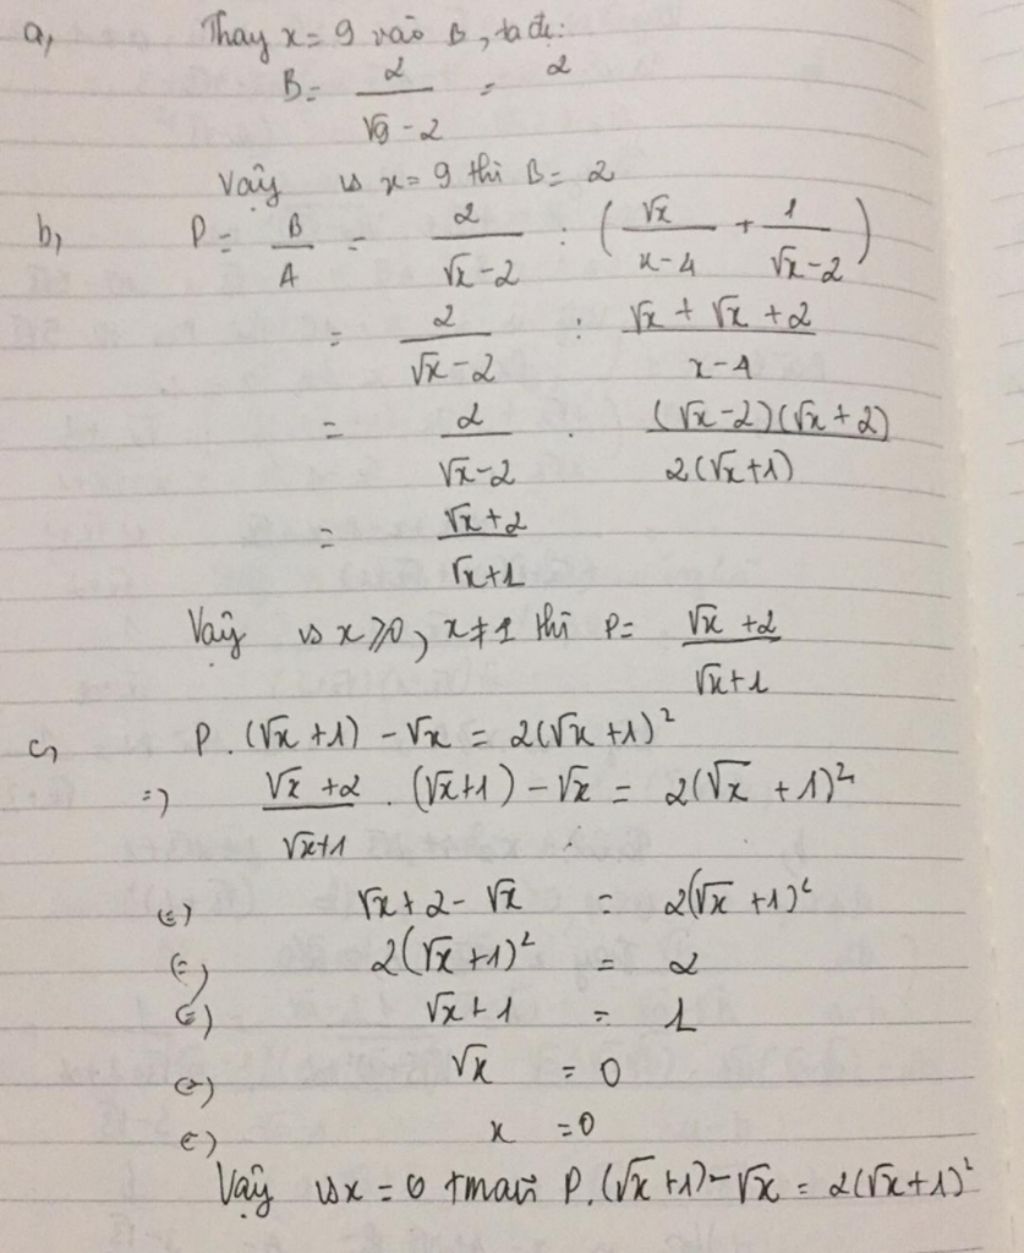 a, Thay x = 9 vào B, ta đc:
B = 2/(√9 - 2) = 2
Vậy vs x = 9 thì B = 2
b, P = B/A = 2/(√x - 2) : (√x/(x - 4) + 1/(√x - 2))
= 2/(√x - 2) : (√x + √x + 2)/(x - 4)
= 2/(√x - 2) . (√x - 2)(√x + 2)/2(√x + 1)
= (√x + 2)/(√x + 1)
Vậy vs x ⩾ 0, x ≠ 1 thì P = (√x + 2)/(√x + 1)
c, P . (√x + 1) - √x = 2(√x + 1)²
=) (√x + 2)/(√x + 1) . (√x + 1) - √x = 2(√x + 1)²
(=) √x + 2 - √x = 2(√x + 1)²
(=) 2(√x + 1)² = 2
(=) √x + 1 = 1
(=) √x = 0
(=) x = 0
Vậy vs x = 0 tmãn P.(√x + 1) - √x = 2(√x + 1)²